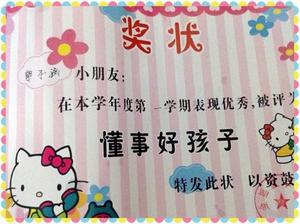 奖状
小朋友：
在本学年度第一学期表现优秀，被评为
懂事好孩子
特发此状 以资鼓